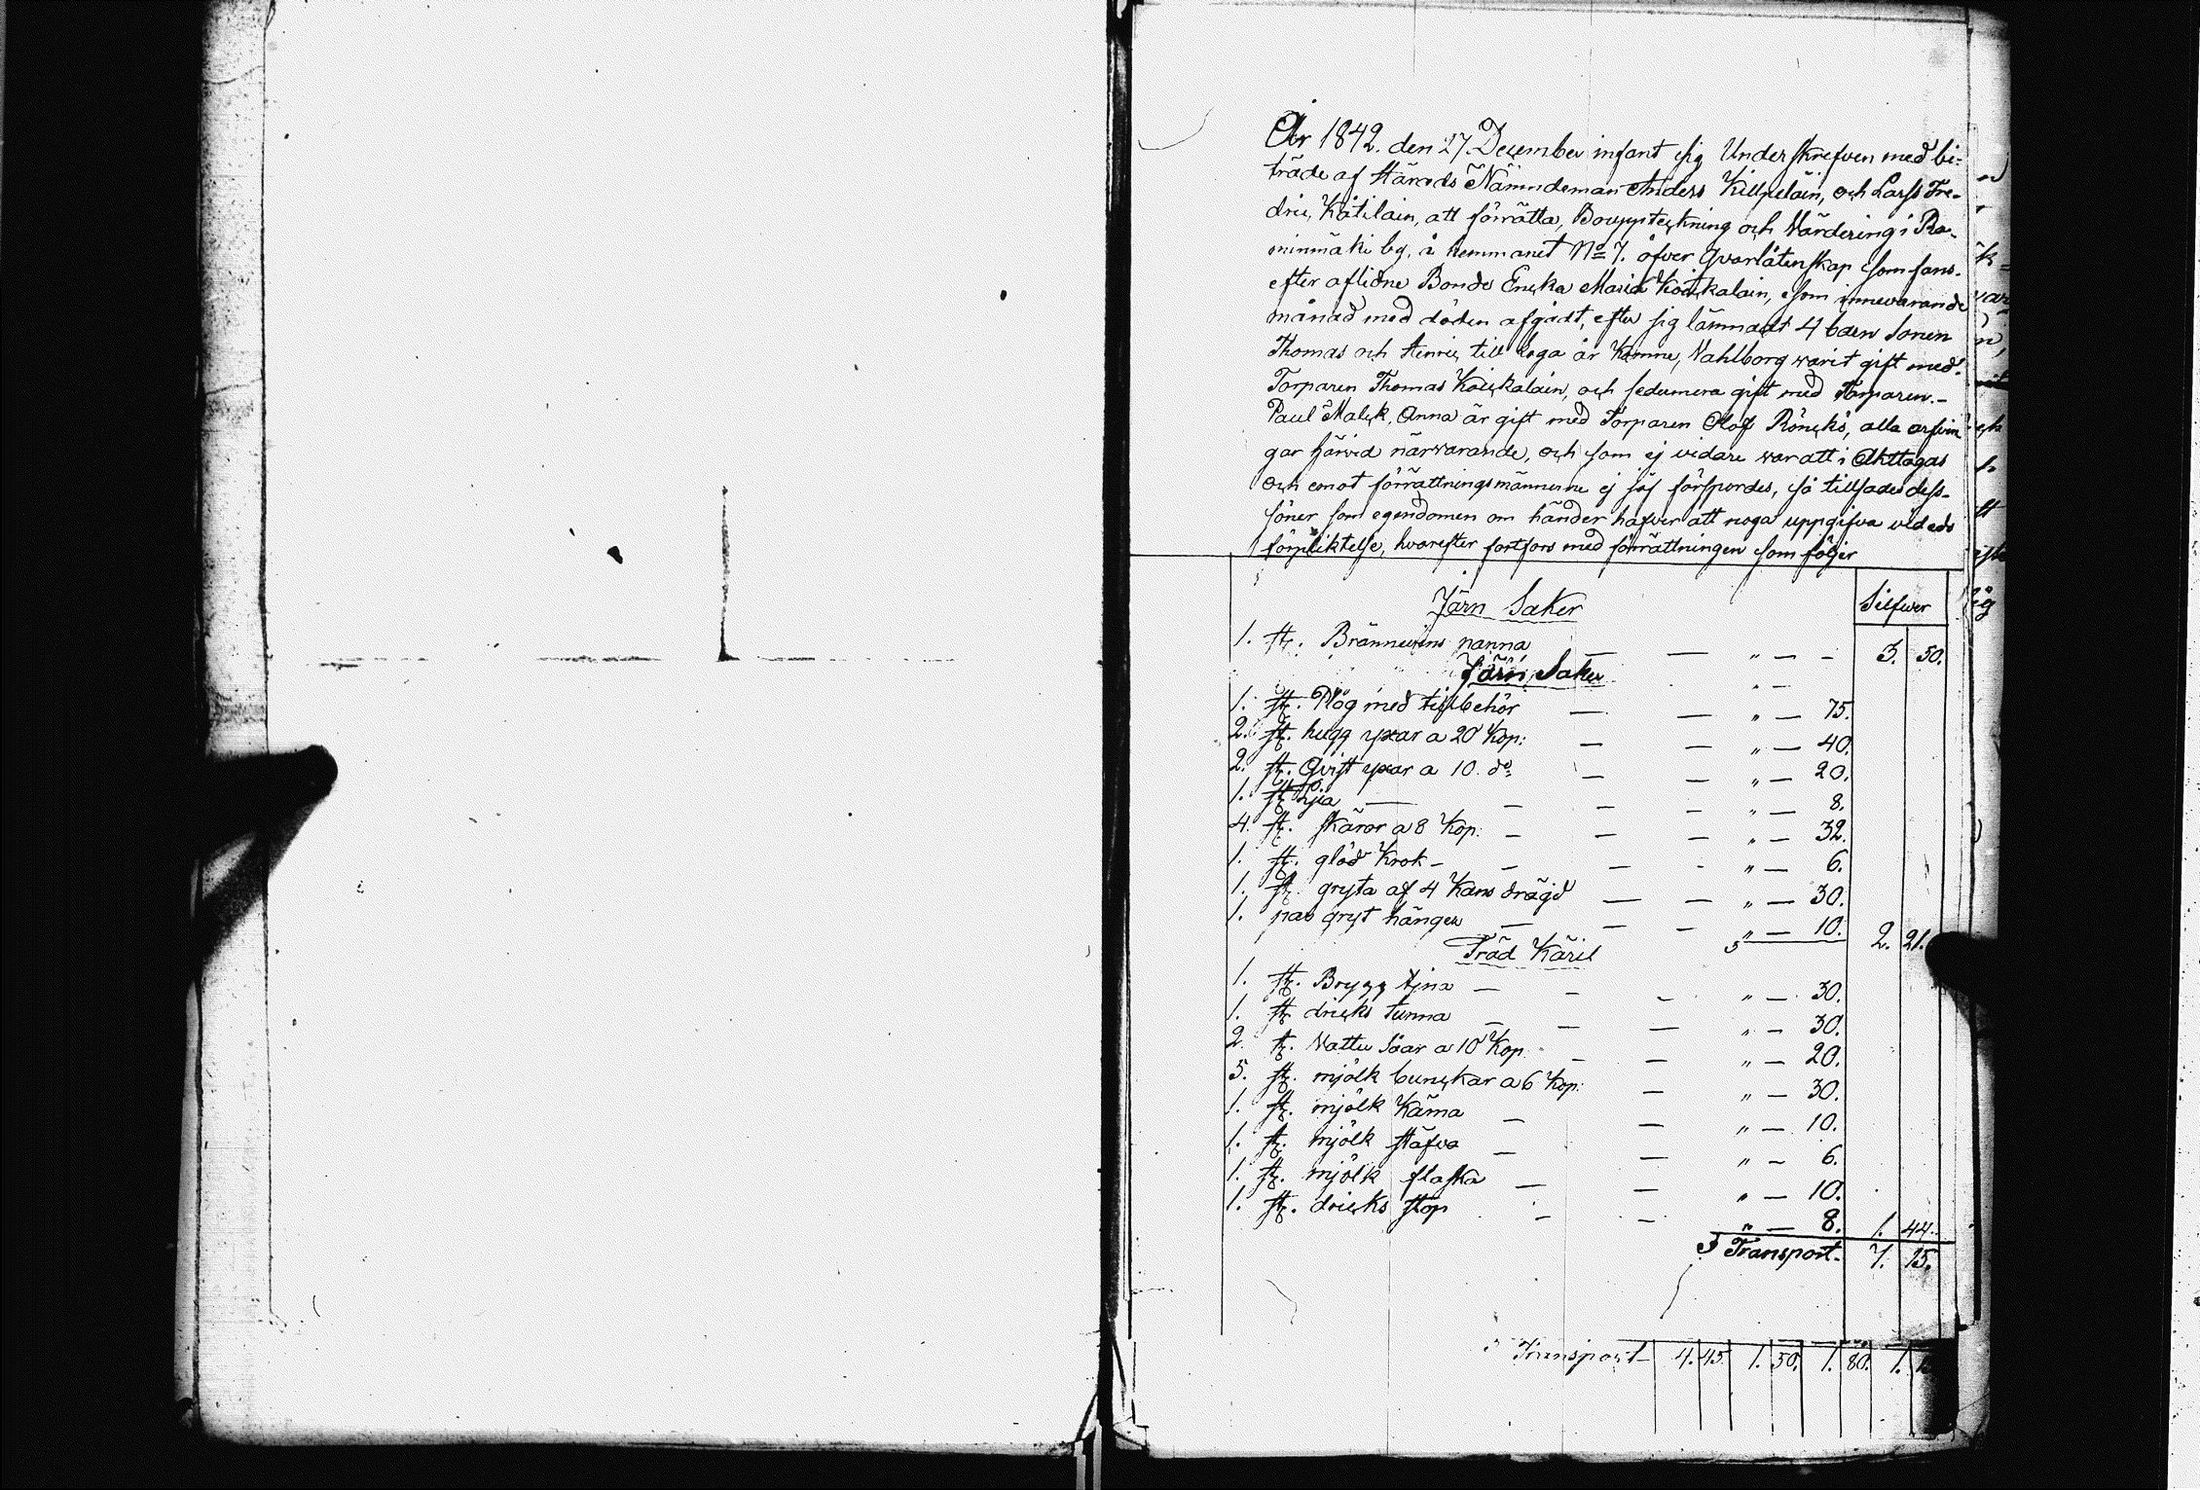 År 1842. den 27 December infant sig Underskrefven med bi-
träde af Härads Nämndeman Anders Killpeläin, och Larss Fre-
dric, Kåtilain, att förrätta, Bouppteckning och Värdering i Ra-
minmäki by, å hemmanet No 7. öfver qvarlåtenskap som fans
efter aflidne Bonde Encka Maria Koickalain, som innevarande
månad med döden afgådt, efter sig lämnadt 4 barn Sonen
Thomas och Henric till laga år Komne, Vahlborg warit gift med
Torparen Thomas Koickalain, och sedumera gift med Torparen.-
Paul Malck, Anna är gift med Torparen Olof Rönckö, alla arfvin
gar härvid närvarande, och som ej vidare war att i Akttagas
och emot förrättningsmännerne ej jäf försporde­s, så tillsades dess
söner som egendomen om händer hafver att noga uppgifva vid eds
förpliktelse, hvarefter fortfors med förrättningen som följer
Järn Saker Silfwer
1. st. Brännevins panna — — " — - 3. 50.
Järn Saker
1. st. Plog med tillbehör — — " — 75.
2. st. hugg yxar a 20 Kop: — — " — 40.
2. st. Qvist yxar a 10. do — — " — 20.
1. st Lia — — — — " — 8.
4. st. skäror a 8 Kop: — — — " — 32.
1. st. glöd Krok - — — - " — 6.
1. st. gryta af 4 Kans drägd — — " — 30.
1. par gryt hänger — — - " — 10. 2. 21.
Träd Käril
1. st. Brygg tina — - - " — 30.
1. st dricks tunna — — — " — 30.
2. st. Vattu Såar a 10 Kop - — " — 20.
5. st. mjölk bunckar a 6 Kop: — " — 30.
1. st. mjölk Kärna — — " — 10.
1. st. mjölk stäfva — — " — 6.
1. st. mjölk flaska — — " — 10.
1. st. dricks stop - — " — 8. 1. 44.
Transport- 7. 15.
Transport- 4. 45. 1. 50. 1. 80. 1.